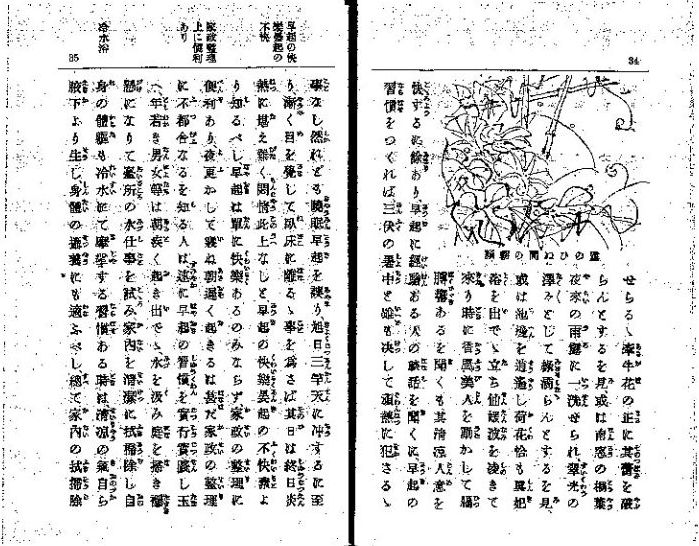 34
露のひぬ間の朝顔
せらるゝ牽牛花の正に其蕾を破
らんとするを見或は南窓の梧葉
夜來の雨露に一洗せられ、翠光の
として緑滴らんとするを見、
或は池殘を逍遙し荷花恰も
浴を出でゝ立ち仙 波を凌ぎて
來り時に香風美人を動かして
あるを聞くも其清凉人意を
快するに餘あり早起に經驗ある人の談話を聞くに早起の
習慣をつくれば三伏の暑中と雖も決して炎熱に犯さるゝ
35
早起の快
樂晏起の
不快
家政整理
上に便利
あり
冷水浴
事なし然れども曉眠早起を誤り、旭日三竿天に冲するに至
り、漸く目を覺して臥床に離るゝ事を爲さば其日は終日炎
熱に堪え難く悶惱此上なしと早起の快樂晏起の不快素よ
り知るべし早起は單に快樂あるのみならず家政の整理に
便利あり、夜更かして寢ね朝遲く起きるは甚だ家政の整理
に不都合なるを知る人は速に早起の習慣を實行實踐し玉
へ年若き男女等は朝疾く起き出でゝ水を汲み庭を掃き
になりて臺所の水仕事を試み家内を清潔に拭掃除し自
身の體軀も冷水にて摩擦する習慣ある時は清凉の氣自ら
腋下より生じ、身體の養にも適ふべし總て家内の拭掃除